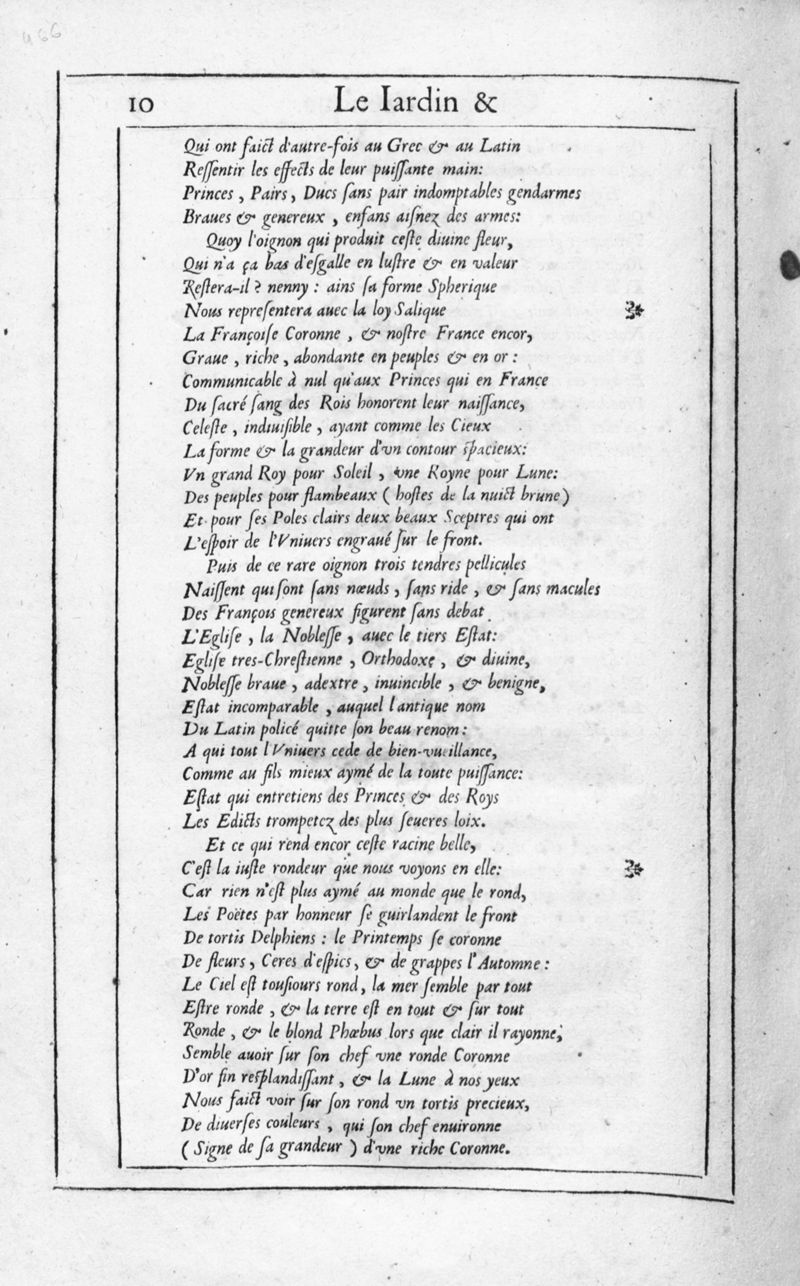 466
10 Le Iardin &
Qui ont faict d'autre-fois au Grec & au Latin
Reſſentir les effects de leur puiſſante main:
Princes, Pairs, Ducs ſans pair indomptables gendarmes
Braues & genereux, enfans aiſnez des armes:
Quoy l'oignon qui produit ceſte diuine fleur,
Qui n'a ça bas d'eſgalle en luſtre & en valeur
Reſtera-il? nenny: ains ſa forme Spherique
Nous repreſentera auec la loy Salique
La Françoiſe Coronne, & noſtre France encor,
Graue, riche, abondante en peuples & en or:
Communicable à nul qu'aux Princes qui en France
Du ſacré ſang des Rois honorent leur naiſſance,
Celeſte, indiuiſible, ayant comme les Cieux
La forme & la grandeur d'vn contour ſpacieux:
Vn grand Roy pour Soleil, vne Royne pour Lune:
Des peuples pour flambeaux (hoſtes de la nuict brune)
Et pour ſes Poles clairs deux beaux Sceptres qui ont
L'eſpoir de l'Vniuers engraué ſur le front.
Puis de ce rare oignon trois tendres pellicules
Naiſſent qui ſont ſans nœuds, ſans ride, & ſans macules
Des François genereux figurent ſans debat
L'Egliſe, la Nobleſſe, auec le tiers Eſtat:
Egliſe tres-Chreſtienne, Orthodoxe, & diuine,
Nobleſſe braue, adextre, inuincible, & benigne,
Eſtat incomparable, auquel l'antique nom
Du Latin policé quitte ſon beau renom:
A qui tout l'Vniuers cede de bien-vueillance,
Comme au fils mieux aymé de la toute puiſſance:
Eſtat qui entretiens des Princes & des Roys
Les Edicts trompetez des plus ſeueres loix.
Et ce qui rend encor ceſte racine belle,
C'eſt la iuſte rondeur que nous voyons en elle:
Car rien n'eſt plus aymé au monde que le rond,
Les Poëtes par honneur ſe guirlandent le front
De tortis Delphiens: le Printemps ſe coronne
De fleurs, Ceres d'eſpics, & de grappes l'Automne:
Le Ciel eſt touſiours rond, la mer ſemble par tout
Eſtre ronde, & la terre eſt en tout & ſur tout
Ronde, & le blond Phœbus lors que clair il rayonne,
Semble auoir ſur ſon chef vne ronde Coronne
D'or fin reſplandiſſant, & la Lune à nos yeux
Nous faict voir ſur ſon rond vn tortis precieux,
De diuerſes couleurs, qui ſon chef enuironne
(Signe de ſa grandeur) d'vne riche Coronne.